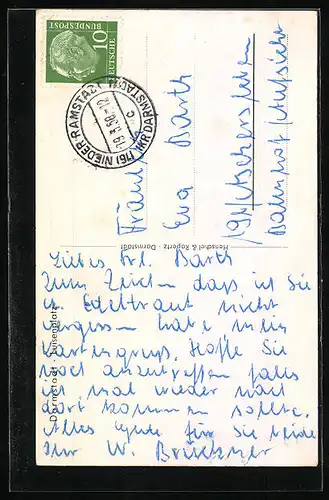 10
DEUTSCHE
BUNDESPOST
(16) NIEDER-RAMSTADT (KR DARMSTADT)
19.3.56-12
c
Fräulein
Eva Barth
Bahnhof Aufsicht
Henschel & Ropertz · Darmstadt
Darmstadt - Luisenplatz
Liebes Frl. Barth
Zum Zeichen dass ich Sie
u. Edeltraut nicht
vergessen habe mein
Kartengruß. Hoffe Sie
noch anzutreffen falls
ich mal wieder nach
dort kommen sollte.
Alles Gute für Sie beide
Ihr W. Brückner